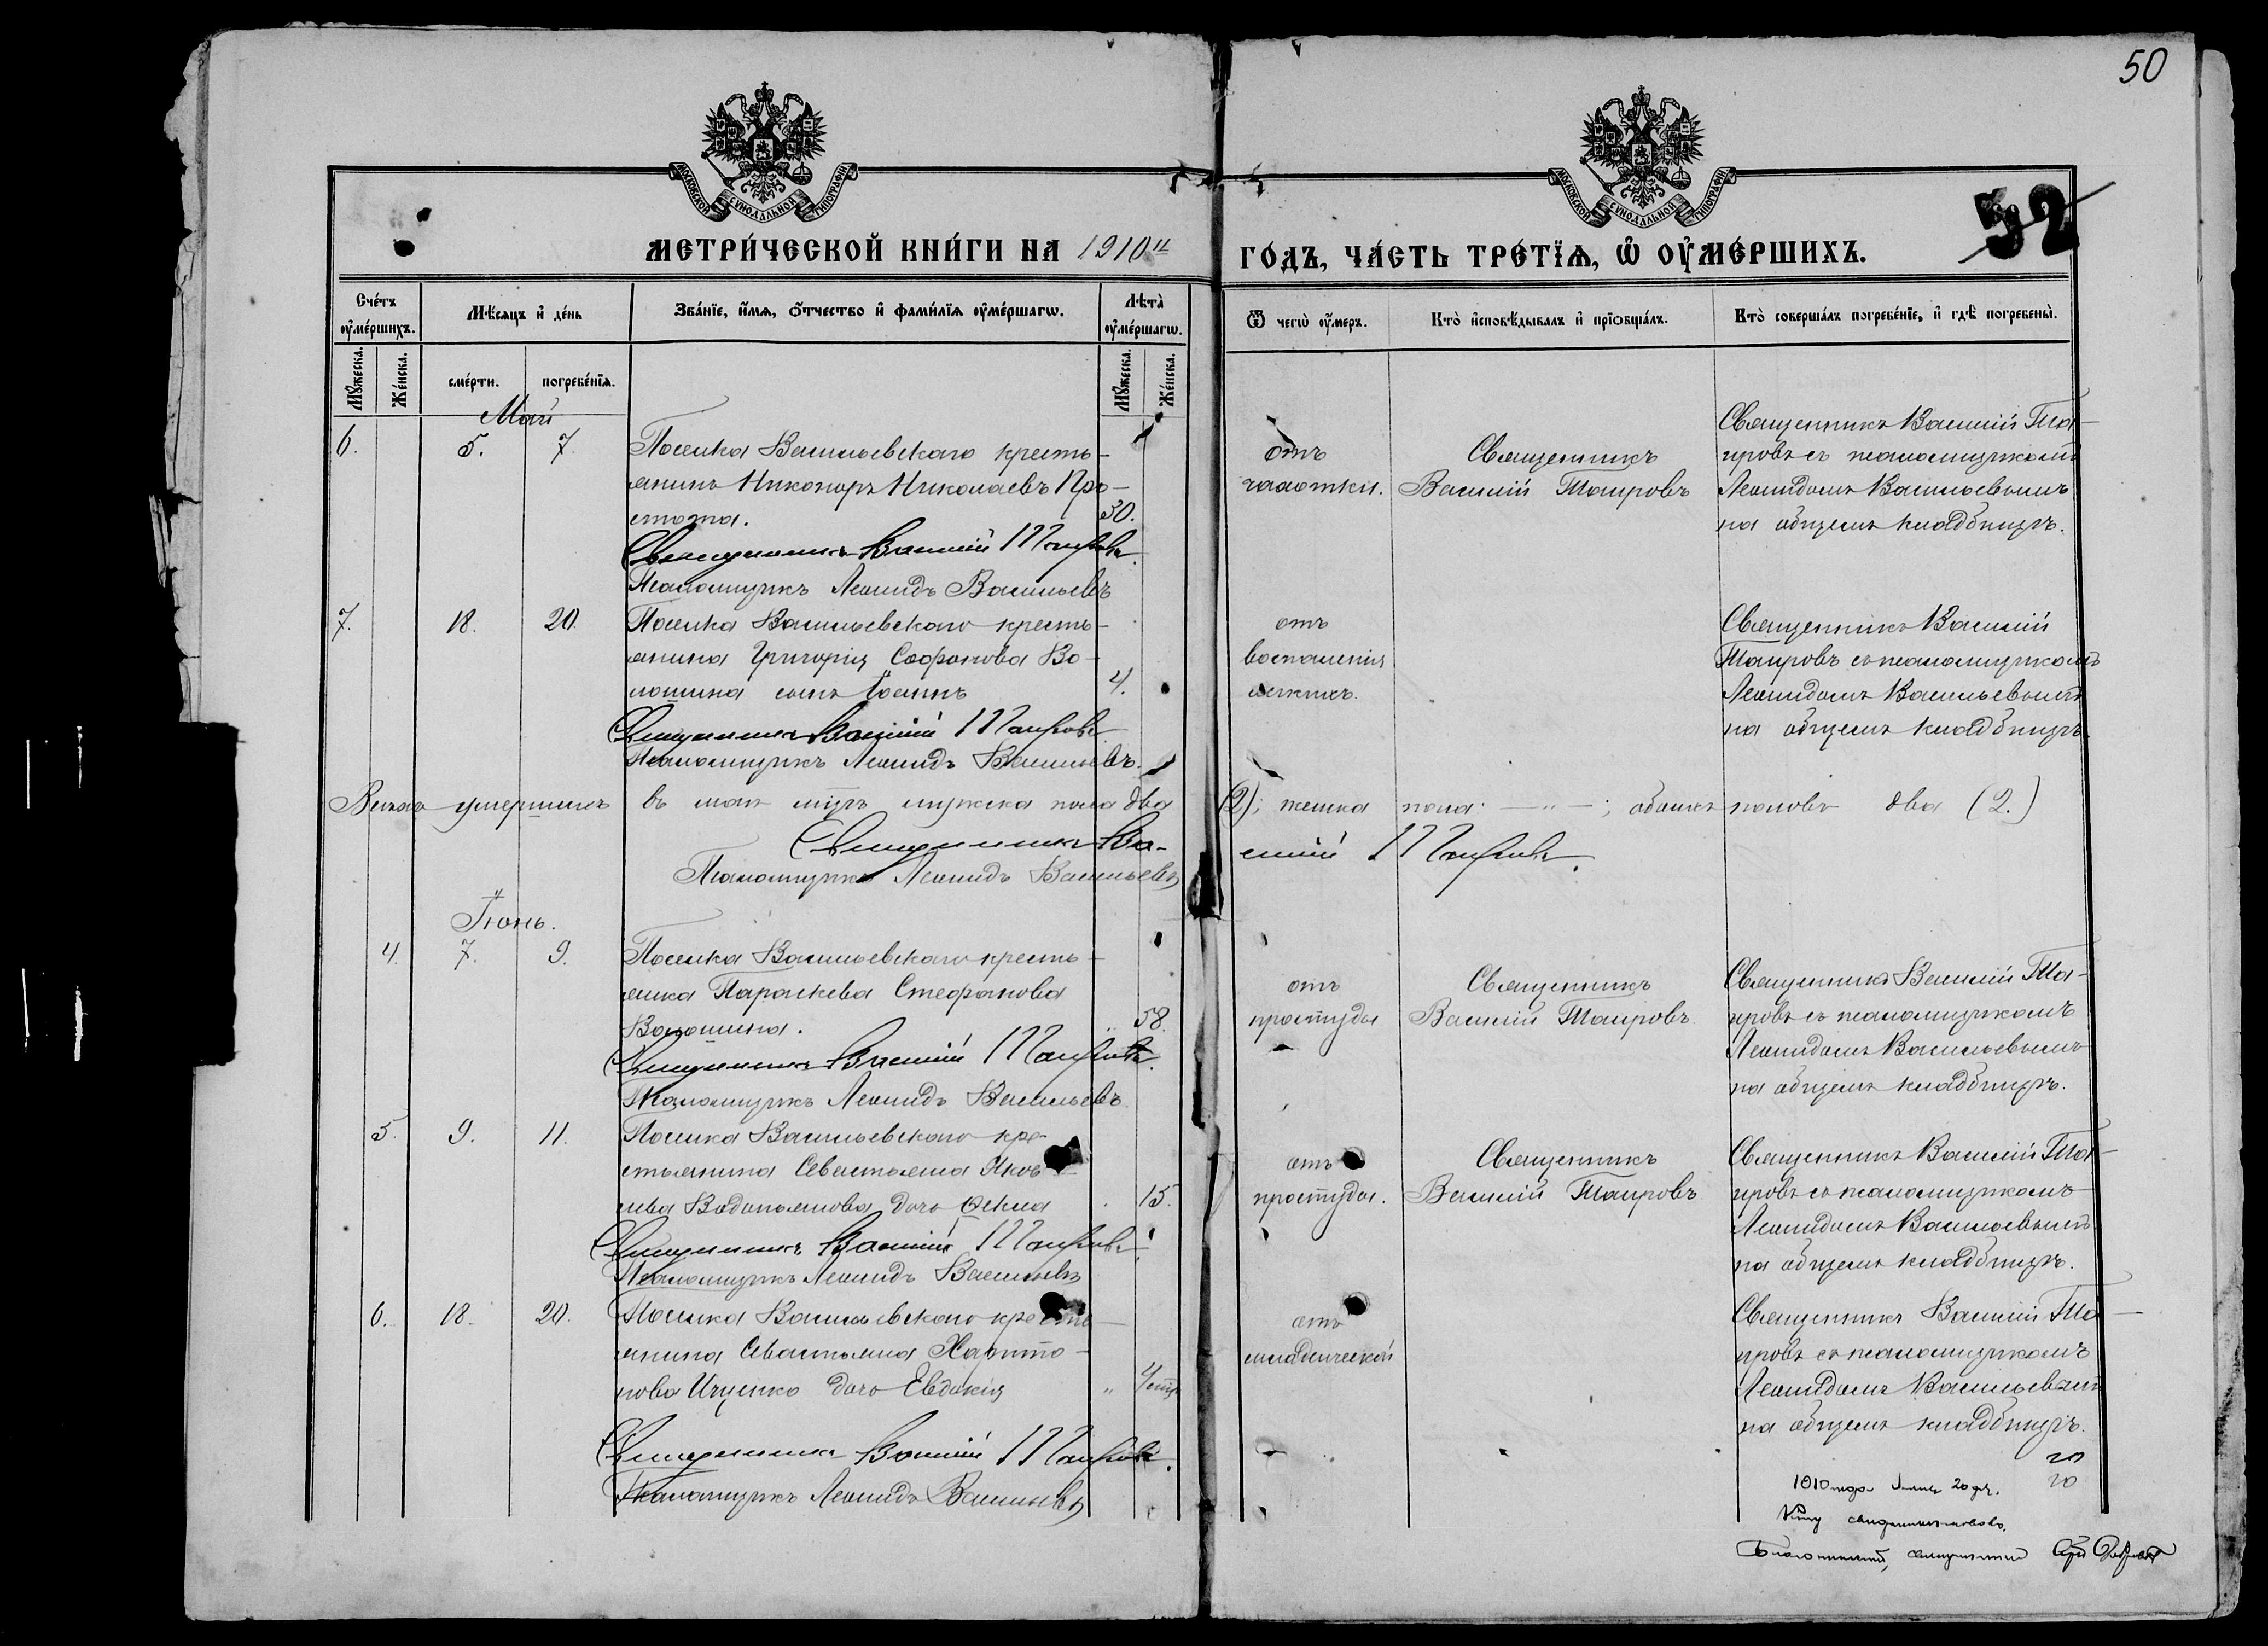 50
МОСКОВСКОЙ СѴНОДАЛЬНОЙ ТИПОГРАФІИ
МОСКОВСКОЙ СѴНОДАЛЬНОЙ ТИПОГРАФІИ
52
МЕТРИ́ЧЕСКОЙ КНИ́ГИ НА 1910й
ГО́ДЪ, ЧА́СТЬ ТРЕ́ТЇѦ, Ѽ ОУ҆МЕ́РШИХЪ.
Сче́тъ оу҆ме́ршихъ.
Мѣ́сяцъ и҆ де́нь
Зва́нїе, и҆́мѧ, ѻ҆́тчество и҆ фами́лїѧ оу҆ме́ршагѡ.
Лѣта̀ оу҆ме́ршагѡ.
Ѿ чегѡ̀ оу҆́меръ.
Кто̀ и҆сповѣ́дывалъ и҆ прїѡбща́лъ.
Кто̀ соверша́лъ погребе́нїе, и҆ гдѣ̀ погребены̀.
Мꙋ́жеска.
Же́нска.
сме́рти.
погребе́нїѧ.
Мꙋ́жеска.
Же́нска.
Май
6. 5. 7.
Поселка Васильевскаго кресть-
янинъ Никоноръ Николаевъ Про-
стота. 30.
Священникъ Василій Таировъ.
Псаломщикъ Леонидъ Васильевъ
отъ
чахотки.
Священникъ
Василій Таировъ
Священникъ Василій Та-
ировъ съ псаломщикомъ
Леонидомъ Васильевымъ
на общемъ кладбищѣ.
7. 18. 20.
Поселка Васильевскаго кресть-
янина Григорія Софонова Во-
лошина сынъ Іоаннъ 4.
Священникъ Василій Таировъ
Псаломщикъ Леонидъ Васильевъ.
отъ
воспаленія
легкихъ.
Священникъ Василій
Таировъ съ псаломщикомъ
Леонидомъ Васильевымъ
на общемъ кладбищѣ.
Всего умершихъ въ маѣ мцѣ мужска пола два (2); женска пола: — „ — ; обоихъ половъ два (2.)
Священникъ Ва-
силій Таировъ.
Псаломщикъ Леонидъ Васильевъ
Іюнь.
4. 7. 9.
Поселка Васильевскаго кресть-
янка Параскева Стефанова
Волошина. „ 58.
Священникъ Василій Таировъ.
Псаломщикъ Леонидъ Васильевъ.
отъ
простуды
Священникъ
Василій Таировъ.
Священникъ Василій Та-
ировъ съ псаломщикомъ
Леонидомъ Васильевымъ
на общемъ кладбищѣ.
5. 9. 11.
Поселка Васильевскаго кре-
стьянина Севастьяна Яков-
лева Водопьянова дочь Ѳекла 15.
Священникъ Василій Таировъ.
Псаломщикъ Леонидъ Васильевъ
отъ
простуды.
Священникъ
Василій Таировъ
Священникъ Василій Та-
ировъ съ псаломщикомъ
Леонидомъ Васильевымъ
на общемъ кладбищѣ.
6. 18. 20.
Поселка Васильевскаго кресть-
янина Севастьяна Харито-
нова Ищенко дочь Евдокія „ 4 мц.
Священникъ Василій Таировъ.
Псаломщикъ Леонидъ Васильевъ
отъ
младенческой
Священникъ Василій Та-
ировъ съ псаломщикомъ
Леонидомъ Васильевымъ
на общемъ кладбищѣ.
20
20
1910 года 20 дня.
Книгу свидетельствовалъ
Благочинный, священникъ